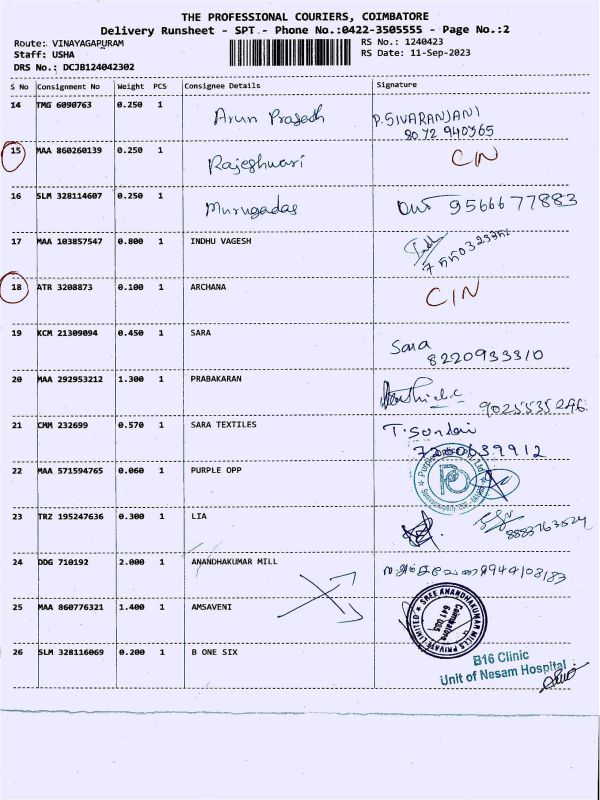 THE PROFESSIONAL COURIERS, COIMBATORE
Delivery Runsheet - SPT - Phone No.:0422-3505555 - Page No.:2
Route: VINAYAGAPURAM
RS No.: 1240423
Staff: USHA
RS Date: 11-Sep-2023
DRS No.: DCJB124042302
S No Consignment No Weight PCS Consignee Details Signature
14 TMG 6090763 0.250 1 Arun Prasadh P.SIVARANJANI
8072 940365
15 MAA 860260139 0.250 1 Rajeshwari CIN
16 SLM 328114607 0.250 1 Murugadas 9566677883
17 MAA 103857547 0.800 1 INDHU VAGESH
18 ATR 3208873 0.100 1 ARCHANA CIN
19 KCM 21309094 0.450 1 SARA Sara
8220933310
20 MAA 292953212 1.300 1 PRABAKARAN
9025535246
21 CMM 232699 0.570 1 SARA TEXTILES T. Sundai
7200639912
22 MAA 571594765 0.060 1 PURPLE OPP
23 TRZ 195247636 0.300 1 LIA
8883763524
24 DDG 710192 2.000 1 ANANDHAKUMAR MILL 9944108183
25 MAA 860776321 1.400 1 AMSAVENI
SREE ANANDHAKUMAR MILLS PRIVATE LIMITED
Coimbatore
641 035
26 SLM 328116069 0.200 1 B ONE SIX
B16 Clinic
Unit of Nesam Hospital